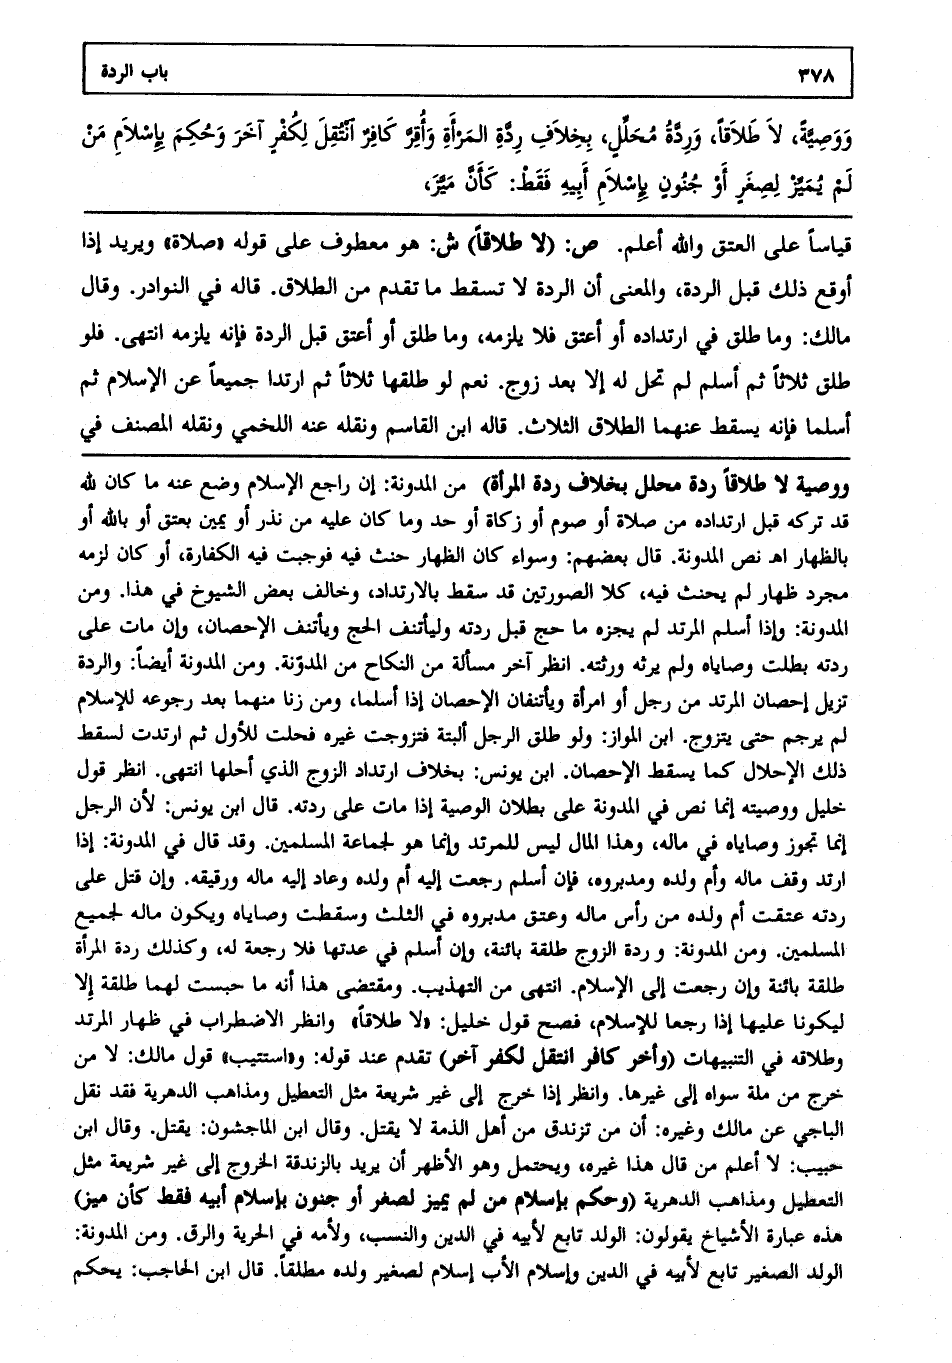 ٣٧٨ باب الردة
وَوَصِيَّةً، لاَ طَلاَقاً، وَرِدَّةُ مُحَلِّلٍ، بِخِلاَفِ رِدَّةِ المَرْأَةِ وَأُقِرَّ كَافِرٌ آنْتَقَلَ لِكُفْرٍ آخَرَ وَحُكِمَ بِإِسْلاَمِ مَنْ
لَمْ يُمَيِّزْ لِصِغَرٍ أَوْ جُنُونٍ بِإِسْلاَمِ أَبِيهِ فَقَطْ: كَأَنْ مَيَّزَ،
قياساً على العتق والله أعلم. ص: (لا طلاقاً) ش: هو معطوف على قوله «صلاة» ويريد إذا
أوقع ذلك قبل الردة، والمعنى أن الردة لا تسقط ما تقدم من الطلاق. قاله في النوادر. وقال
مالك: وما طلق في ارتداده أو أعتق فلا يلزمه، وما طلق أو أعتق قبل الردة فإنه يلزمه انتهى. فلو
طلق ثلاثاً ثم أسلم لم تحل له إلا بعد زوج. نعم لو طلقها ثلاثاً ثم ارتدا جميعاً عن الإسلام ثم
أسلما فإنه يسقط عنهما الطلاق الثلاث. قاله ابن القاسم ونقله عنه اللخمي ونقله المصنف في
ووصية لا طلاقاً ردة محلل بخلاف ردة المرأة) من المدونة: إن راجع الإسلام وضع عنه ما كان لله
قد تركه قبل ارتداده من صلاة أو صوم أو زكاة أو حد وما كان عليه من نذر أو يمين بعتق أو بالله أو
بالظهار اهـ نص المدونة. قال بعضهم: وسواء كان الظهار حنث فيه فوجبت فيه الكفارة، أو كان لزمه
مجرد ظهار لم يحنث فيه، كلا الصورتين قد سقط بالارتداد، وخالف بعض الشيوخ في هذا. ومن
المدونة: وإذا أسلم المرتد لم يجزه ما حج قبل ردته وليأتنف الحج ويأتنف الإحصان، وإن مات على
ردته بطلت وصاياه ولم يرثه ورثته. انظر آخر مسألة من النكاح من المدوّنة. ومن المدونة أيضاً: والردة
تزيل إحصان المرتد من رجل أو امرأة ويأتنفان الإحصان إذا أسلما، ومن زنا منهما بعد رجوعه للإسلام
لم يرجم حتى يتزوج. ابن المواز: ولو طلق الرجل ألبتة فتزوجت غيره فحلت للأول ثم ارتدت لسقط
ذلك الإحلال كما يسقط الإحصان. ابن يونس: بخلاف ارتداد الزوج الذي أحلها انتهى. انظر قول
خليل ووصيته إنما نص في المدونة على بطلان الوصية إذا مات على ردته. قال ابن يونس: لأن الرجل
إنما تجوز وصاياه في ماله، وهذا المال ليس للمرتد وإنما هو لجماعة المسلمين. وقد قال في المدونة: إذا
ارتد وقف ماله وأم ولده ومدبروه، فإن أسلم رجعت إليه أم ولده وعاد إليه ماله ورقيقه. وإن قتل على
ردته عتقت أم ولده من رأس ماله وعتق مدبروه في الثلث وسقطت وصاياه ويكون ماله لجميع
المسلمين. ومن المدونة: و ردة الزوج طلقة بائنة، وإن أسلم في عدتها فلا رجعة له، وكذلك ردة المرأة
طلقة بائنة وإن رجعت إلى الإسلام. انتهى من التهذيب. ومقتضى هذا أنه ما حبست لهما طلقة إلا
ليكونا عليها إذا رجعا للإسلام، فصح قول خليل: «لا طلاقاً» وانظر الاضطراب في ظهار المرتد
وطلاقه في التنبيهات (وأخر كافر انتقل لكفر آخر) تقدم عند قوله: و«استتيب» قول مالك: لا من
خرج من ملة سواه إلى غيرها. وانظر إذا خرج إلى غير شريعة مثل التعطيل ومذاهب الدهرية فقد نقل
الباجي عن مالك وغيره: أن من تزندق من أهل الذمة لا يقتل. وقال ابن الماجشون: يقتل. وقال ابن
حبيب: لا أعلم من قال هذا غيره، ويحتمل وهو الأظهر أن يريد بالزندقة الخروج إلى غير شريعة مثل
التعطيل ومذاهب الدهرية (وحكم بإسلام من لم يميز لصغر أو جنون بإسلام أبيه فقط كأن ميز)
هذه عبارة الأشياخ يقولون: الولد تابع لأبيه في الدين والنسب، ولأمه في الحرية والرق. ومن المدونة:
الولد الصغير تابع لأبيه في الدين وإسلام الأب إسلام لصغير ولده مطلقاً. قال ابن الحاجب: يحكم